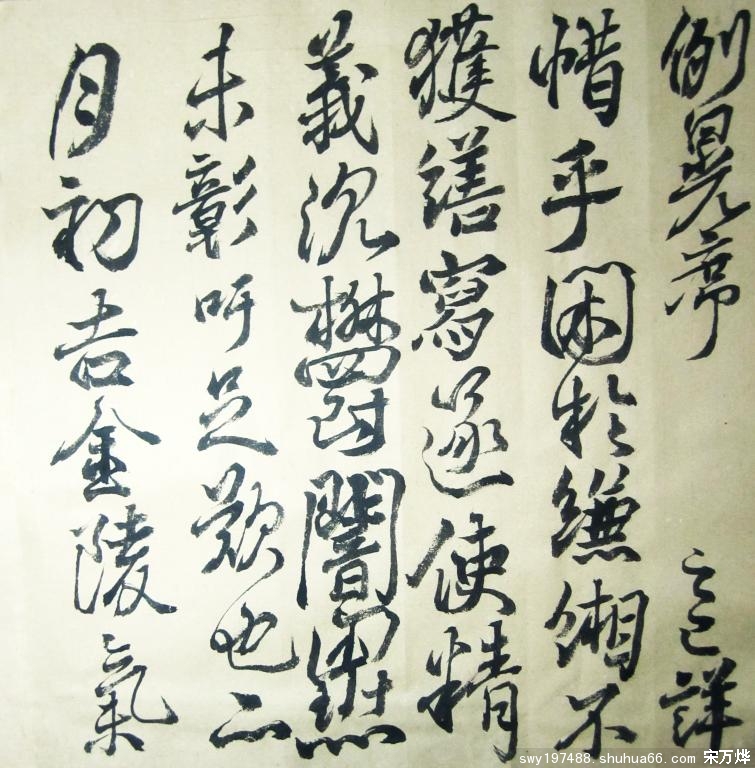 例晃
之已詳
惜乎困於縑緗不
獲繕寫遂使精
義沉鬱闇
未彰吁足歎也二
月初吉金陵氣
swy197488.shuhua66.com 宋万烨